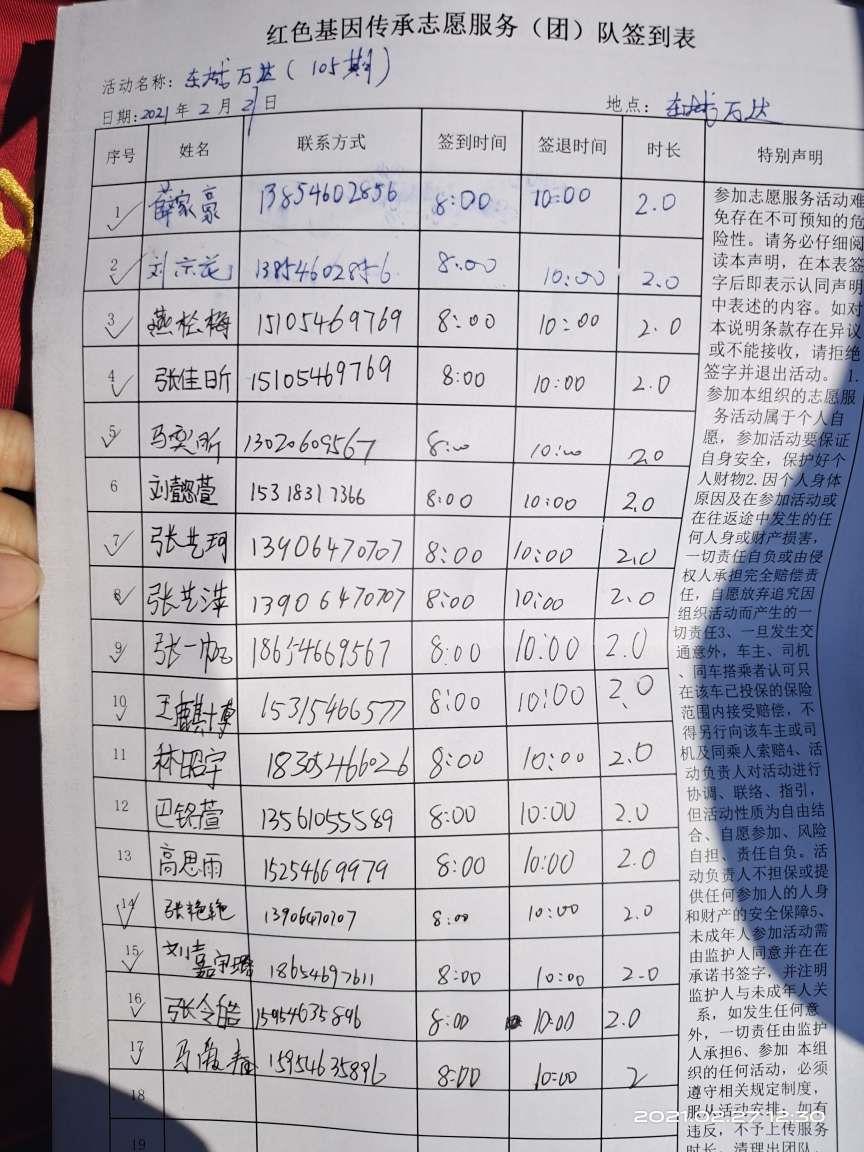 红色基因传承志愿服务（团）队签到表
活动名称：东城万达（105期）
日期：2021年2月27日 地点：东城万达
序号 姓名 联系方式 签到时间 签退时间 时长 特别声明
1 薛家豪 13854602856 8:00 10:00 2.0
2 刘 13854602856 8:00 10:00 2.0
3 燕松梅 15105469769 8:00 10:00 2.0
4 张佳昕 15105469769 8:00 10:00 2.0
5 马奕昕 13020609567 8:00 10:00 2.0
6 刘懿萱 15318317366 8:00 10:00 2.0
7 张艺珂 13906470707 8:00 10:00 2.0
8 张艺萍 13906470707 8:00 10:00 2.0
9 张一 18654669567 8:00 10:00 2.0
10 王麒博 15315466577 8:00 10:00 2.0
11 林昭宇 18305466026 8:00 10:00 2.0
12 巴铭萱 13561055589 8:00 10:00 2.0
13 高思雨 15254669979 8:00 10:00 2.0
14 张艳艳 13906470707 8:00 10:00 2.0
15 刘嘉宇璐 18654697611 8:00 10:00 2.0
16 张令皓 15954635896 8:00 10:00 2.0
17 马 15954635896 8:00 10:00 2
18
19
参加志愿服务活动难
免存在不可预知的危
险性。请务必仔细阅
读本声明，在本表签
字后即表示认同声明
中表述的内容。如对
本说明条款存在异议
或不能接收，请拒绝
签字并退出活动。 1.
参加本组织的志愿服
务活动属于个人自
愿，参加活动要保证
自身安全，保护好个
人财物2.因个人身体
原因及在参加活动或
在往返途中发生的任
何人身或财产损害，
一切责任自负或由侵
权人承担完全赔偿责
任，自愿放弃追究因
组织活动而产生的一
切责任3、一旦发生交
通意外，车主、司机
、同车搭乘者认可只
在该车已投保的保险
范围内接受赔偿，不
得另行向该车主或司
机及同乘人索赔4、活
动负责人对活动进行
协调、联络、指引，
但活动性质为自由结
合、自愿参加、风险
自担、责任自负。活
动负责人不担保或提
供任何参加人的人身
和财产的安全保障5、
未成年人参加活动需
由监护人同意并在在
承诺书签字，并注明
监护人与未成年人关
系，如发生任何意
外，一切责任由监护
人承担6、参加 本组
织的任何活动，必须
遵守相关规定制度，
服从活动安排，如有
违反，不予上传服务
时长，清理出团队。
2021.02.27 12:30